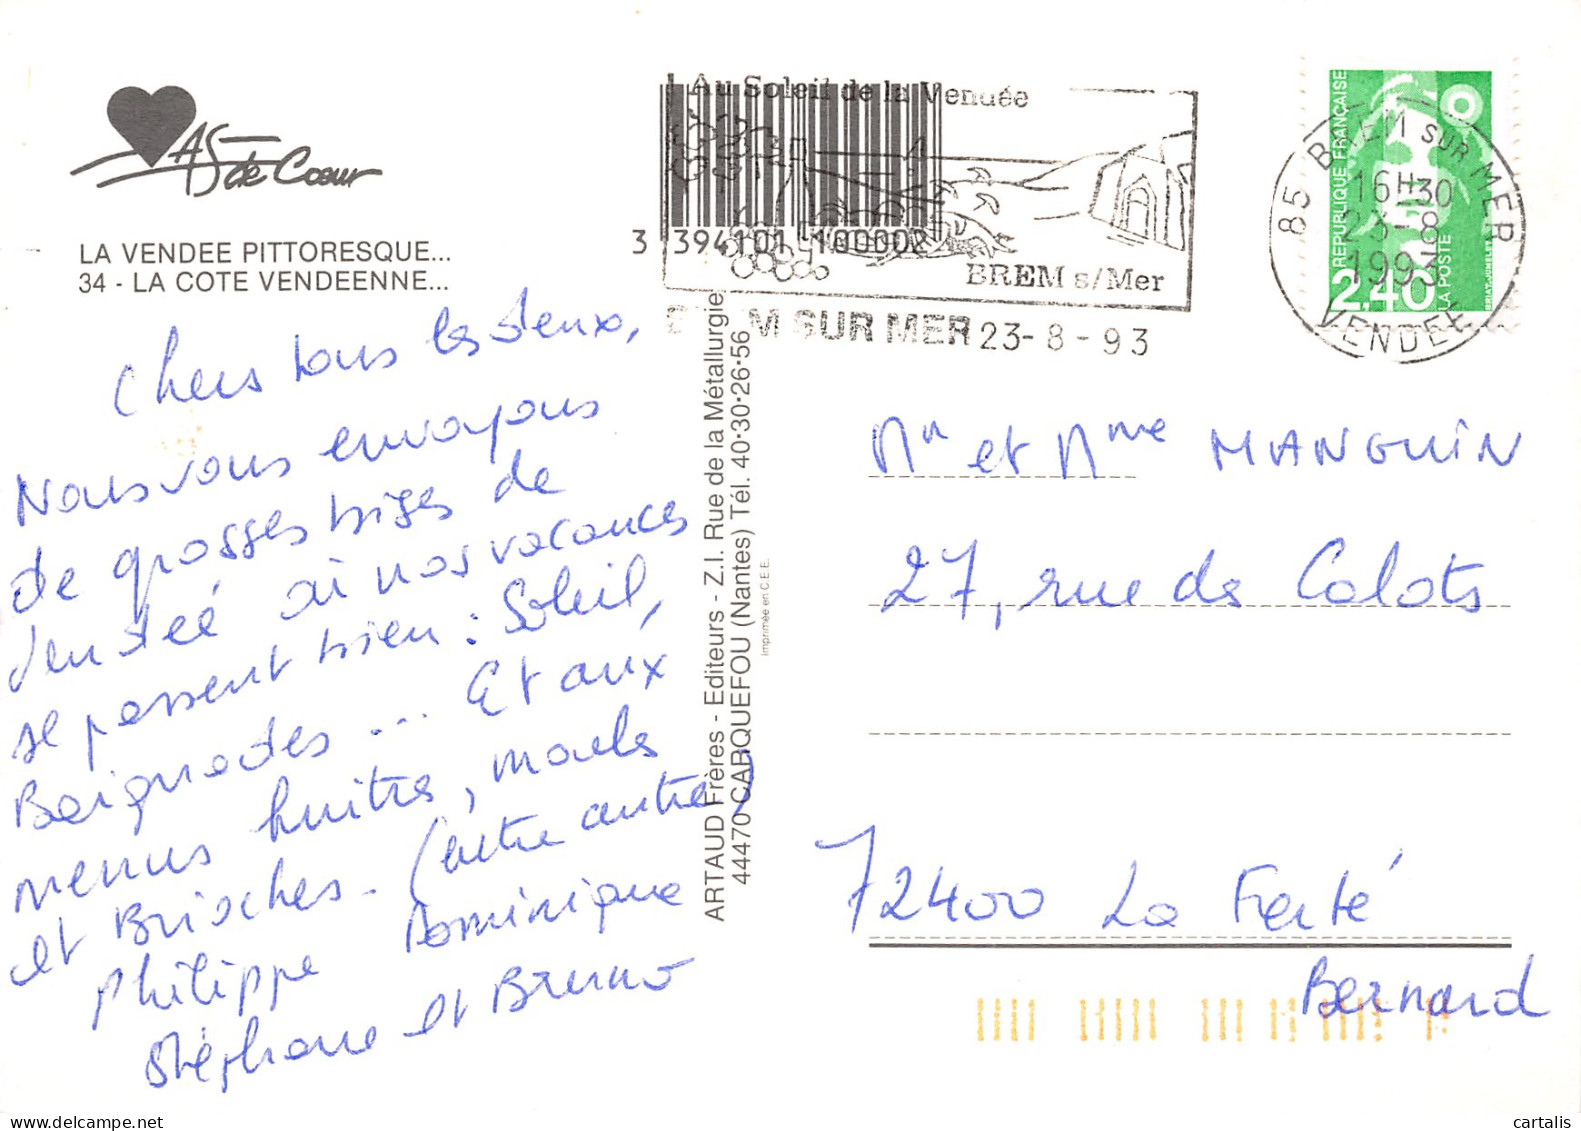 As de Coeur
LA VENDEE PITTORESQUE...
34 - LA COTE VENDEENNE...
Chers tous les deux,
Nous vous envoyons
de grosses bises de
Vendée où nos vacances
se passent bien : Soleil,
Baignades ... Et aux
menus huitres, moules
et Brioches. (entre autre)
Philippe Dominique
Stéphane et Bruno
ARTAUD Frères - Editeurs - Z.I. Rue de la Métallurgie
44470 CARQUEFOU (Nantes) Tél. 40·30·26·56
Imprimée en C.E.E.
Au Soleil de la Vendée
3 394101 100002
BREM s/Mer
BREM SUR MER 23-8-93
85 BREM SUR MER
16H30
23-8
1993
VENDEE
REPUBLIQUE FRANÇAISE
2,40 LA POSTE
BRIAT-JUMELET
Mr et Mme MANGUIN
27, rue des Calots
72400 La Ferté
Bernard
cartalis